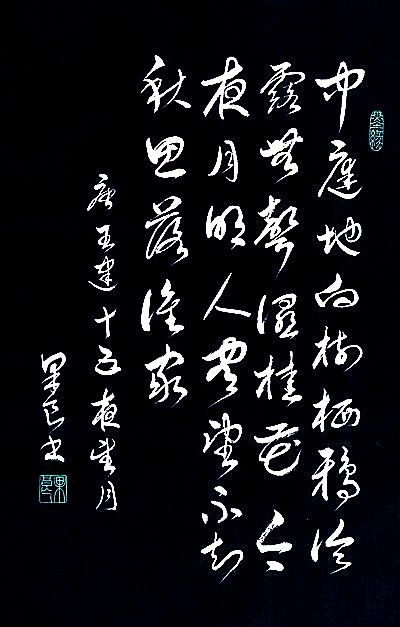 中庭地白樹栖鴉冷
露無聲濕桂花今
夜月明人尽望不知
秋思落誰家
唐王建十五夜望月
果书